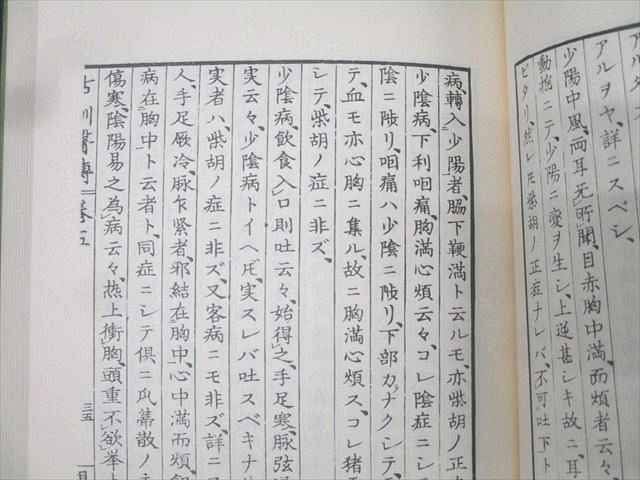 アルヲヤ、詳ニスベシ、
少陽中風、両耳无所聞、目赤胸中満、而煩者云々、
動揺ニテ、少陽ニ変ヲ生シ、上逆甚シキ故ニ、耳
ビタリ、然レ𪜈柴胡ノ正症ナレバ、不可吐下ト
病、轉入少陽者、脇下鞕満ト云ルモ、亦柴胡ノ正
少陰病、下利咽痛、胸満心煩云々、コレ陰症ニシ
陰ニ陟リ、咽痛ハ少陰ニ陟リ、下部カナクシテ、
テ、血モ亦心胸ニ集ル、故ニ胸満心煩ス、コレ猪
シテ、柴胡ノ症ニ非ズ、
少陰病、飲食入口則吐云々、始得之、手足寒、脉弦
実云々、少陰病トイヘ𪜈、実スレバ吐スベキナ
実者ハ、柴胡ノ症ニ非ズ、又客病ニモ非ズ、詳ニ
人、手足厥冷、脉乍緊者、邪結在胸中、心中満而煩、
病在胸中ト云者ト、同症ニシテ倶ニ瓜蔕散ノ
傷寒、陰陽易之為病云々、热上衝胸、頭重不欲挙
古訓醫傳 巻五
三五